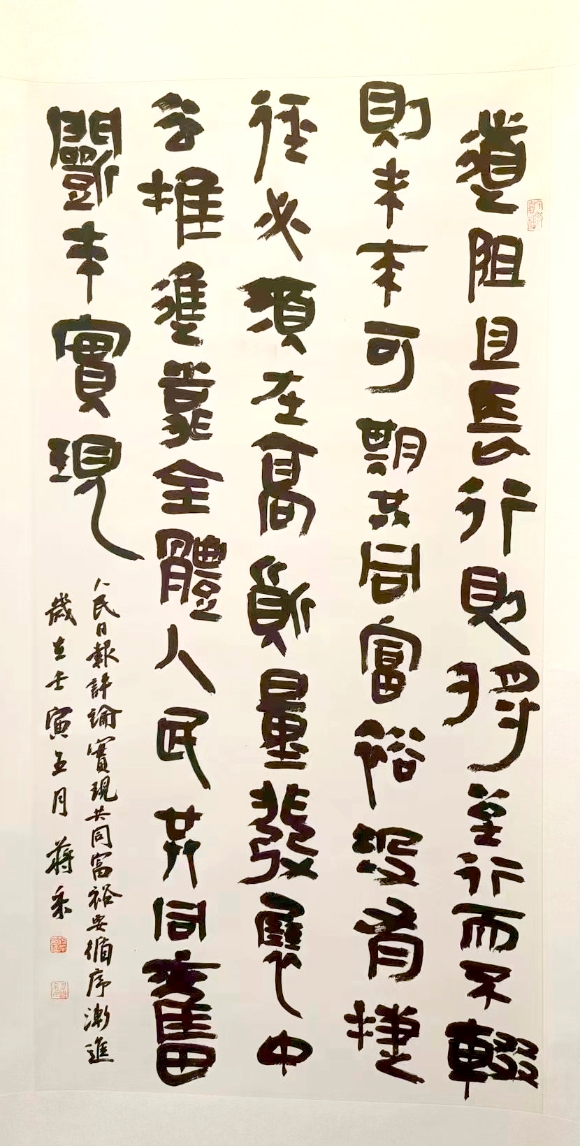 道阻且長行則將至行而不輟
則未來可期共同富裕沒有捷
徑必須在高質量發展中
去推進靠全體人民共同奮
鬭來實現
人民日報評論實現共同富裕要循序漸進
歲在壬寅五月蔣